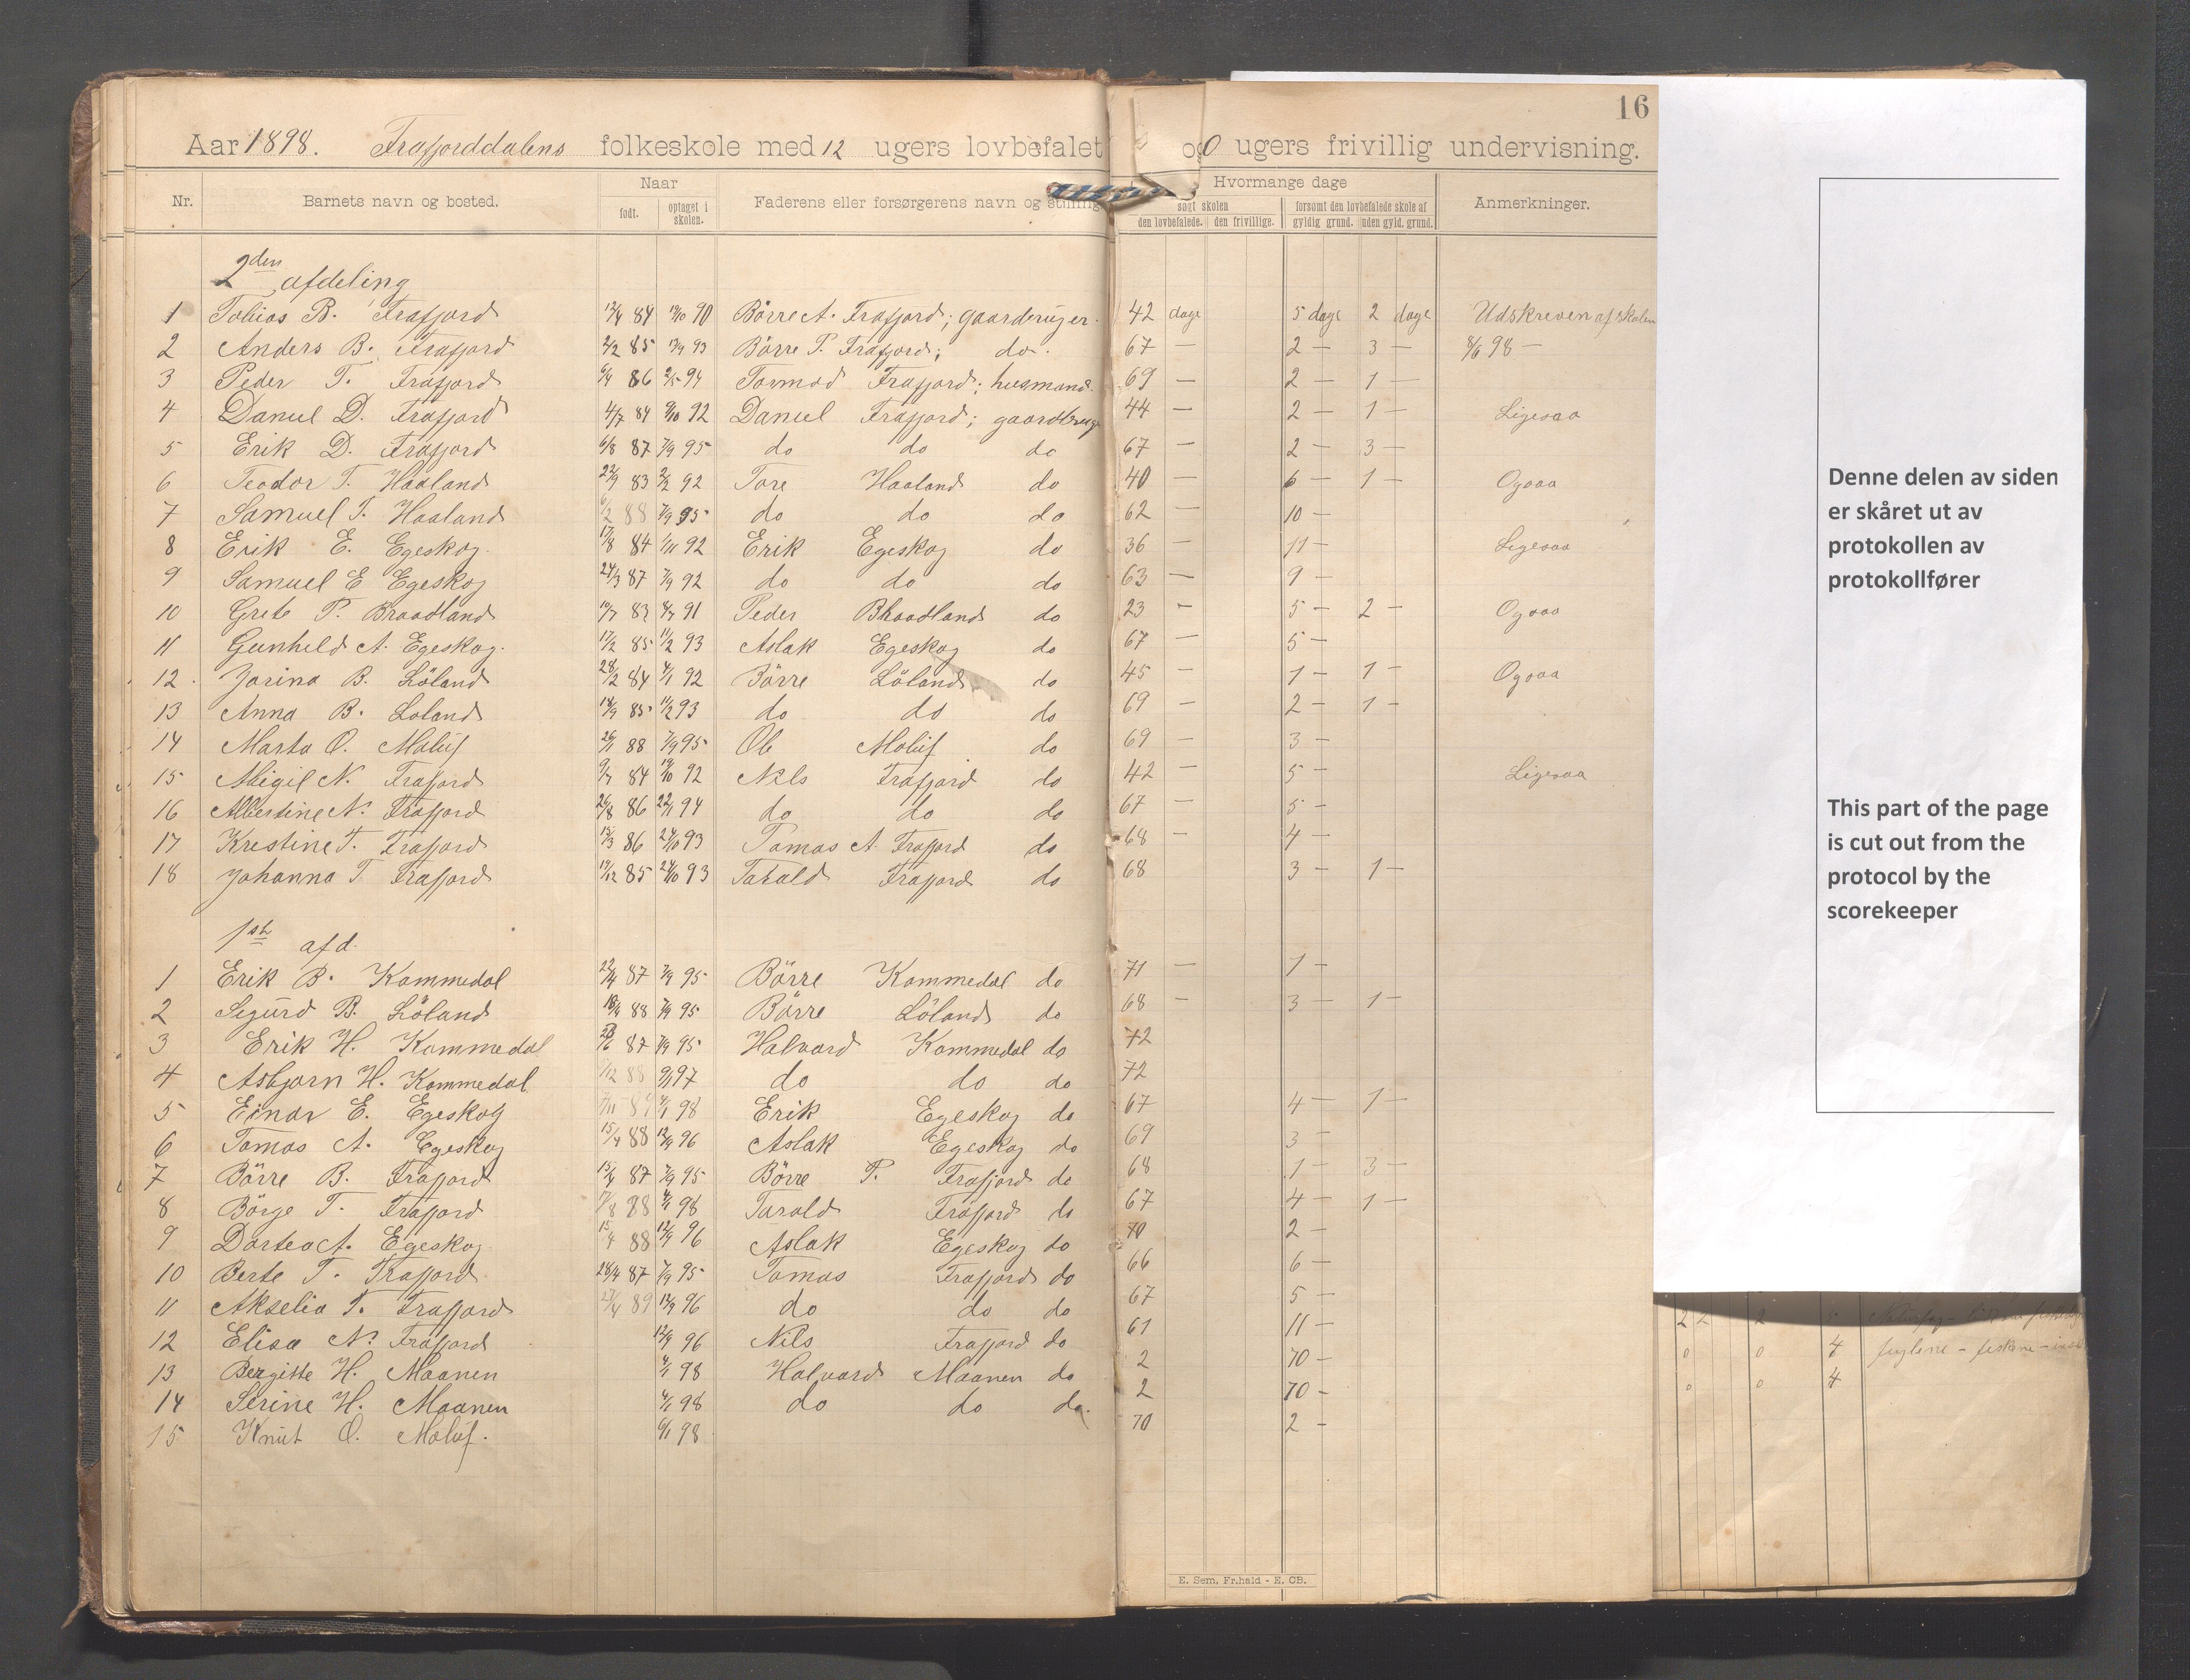 16
Aar 1898. Frafjorddalens folkeskole med 12 ugers lovbefalet og 0 ugers frivillig undervisning.
Nr. Barnets navn og bosted. Naar født. optaget i skolen. Faderens eller forsørgerens navn og stilling. Hvormange dage søgt skolen den lovbefalede. den frivillige. forsømt den lovbefalede skole af gyldig grund. uden gyld. grund. Anmerkninger.
2den afdeling
1 Tobias B. Frafjord 12/4 84 13/10 90 Börre A. Frafjord; gaardbruger. 42 dage 5 dage 2 dage Udskreven af skolen
2 Anders B. Frafjord 2/2 85 13/9 93 Börre P. Frafjord; do. 67 — 2 — 3 — 8/6 98 —
3 Peder T. Frafjord 6/4 86 2/5 94 Tormod Frafjord; husmand. 69 — 2 — 1 —
4 Daniel D. Frafjord 4/7 84 9/10 92 Daniel Frafjord; gaardbrug 44 — 2 — 1 — Ligesaa
5 Erik D. Frafjord 6/8 87 7/9 95 do do do 67 — 2 — 3 —
6 Teodor T. Haaland 22/9 83 2/2 92 Tore Haaland do 40 — 6 — 1 — Ogsaa
7 Samuel T. Haaland 6/2 88 7/9 95 do do do 62 — 10 —
8 Erik E. Egeskog. 17/8 84 1/11 92 Erik Egeskog do 36 — 11 — Ligesaa
9 Samuel E Egeskog 24/3 87 7/9 92 do do do 63 — 9 —
10 Grete P. Braadland 83 91 Peder Braadland do 23 — 5 — 2 — Ogsaa
11 Gunhild A. Egeskog. 17/2 85 11/2 93 Aslak Egeskog do 67 — 5 —
12 Jorina B. Löland 28/2 84 4/1 92 Börre Löland do 45 — 1 — 1 — Ogsaa
13 Anna B. Loland 14/9 85 11/2 93 do do do 69 — 2 — 1 —
14 Marta O. Moluf 26/1 88 7/9 95 Ole Moluf do 69 — 3 —
15 Abigil N. Frafjord 9/7 84 19/10 92 Nils Frafjord do 42 — 5 — Ligesaa
16 Albertine N. Frafjord 26/8 86 22/1 94 do do do 67 — 5 —
17 Krestine T. Frafjord 15/3 86 24/10 93 Tomas A. Frafjord do 68 — 4 —
18 Johanna T Frafjord 19/12 85 24/10 93 Tarald Frafjord do 68 3 — 1 —
1ste afd.
1 Erik B. Kommedal 22/4 87 7/9 95 Börre Kommedal do 71 — 1 —
2 Sigurd B. Löland 18/4 88 7/9 95 Börre Löland do 68 — 3 — 1 —
3 Erik H. Kommedal 87 7/9 95 Halvard Kommedal do 72
4 Asbjorn H. Kommedal. /12 88 9/1 97 do do do 72
5 Einar E. Egeskog 7/11 89 4/1 98 Erik Egeskog do 67 4 — 1 —
6 Tomas A. Egeskog 15/4 88 12/9 96 Aslak Egeskog do 69 3 —
7 Börre B. Frafjord 15/4 87 7/9 95 Börre P. Frafjord do 68 1 — 3 —
8 Börge T. Frafjord 17/8 88 4/1 98 Tarald Frafjord do 67 4 — 1 —
9 Dortea A. Egeskog 15/4 88 12/9 96 Aslak Egeskog do 70 2 —
10 Berte T. Frafjord 28/4 87 7/9 95 Tomas Frafjord do 66 6 —
11 Akselia T. Frafjord 27/4 89 12/9 96 do do do 67 5 —
12 Elisa N. Frafjord 12/9 96 Nils Frafjord do 61 11 —
13 Bergitte H. Maanen 4/1 98 Halvard Maanen do 2 70 —
14 Serine H. Maanen 4/1 98 do do do. 2 70 —
15 Knut O. Moluf. 6/1 98 70 2 -
E. Sem, Fr.hald - E. CB.
Denne delen av siden
er skåret ut av
protokollen av
protokollfører
This part of the page
is cut out from the
protocol by the
scorekeeper
0 0 4 fuglene - fiskene -
0 0 4